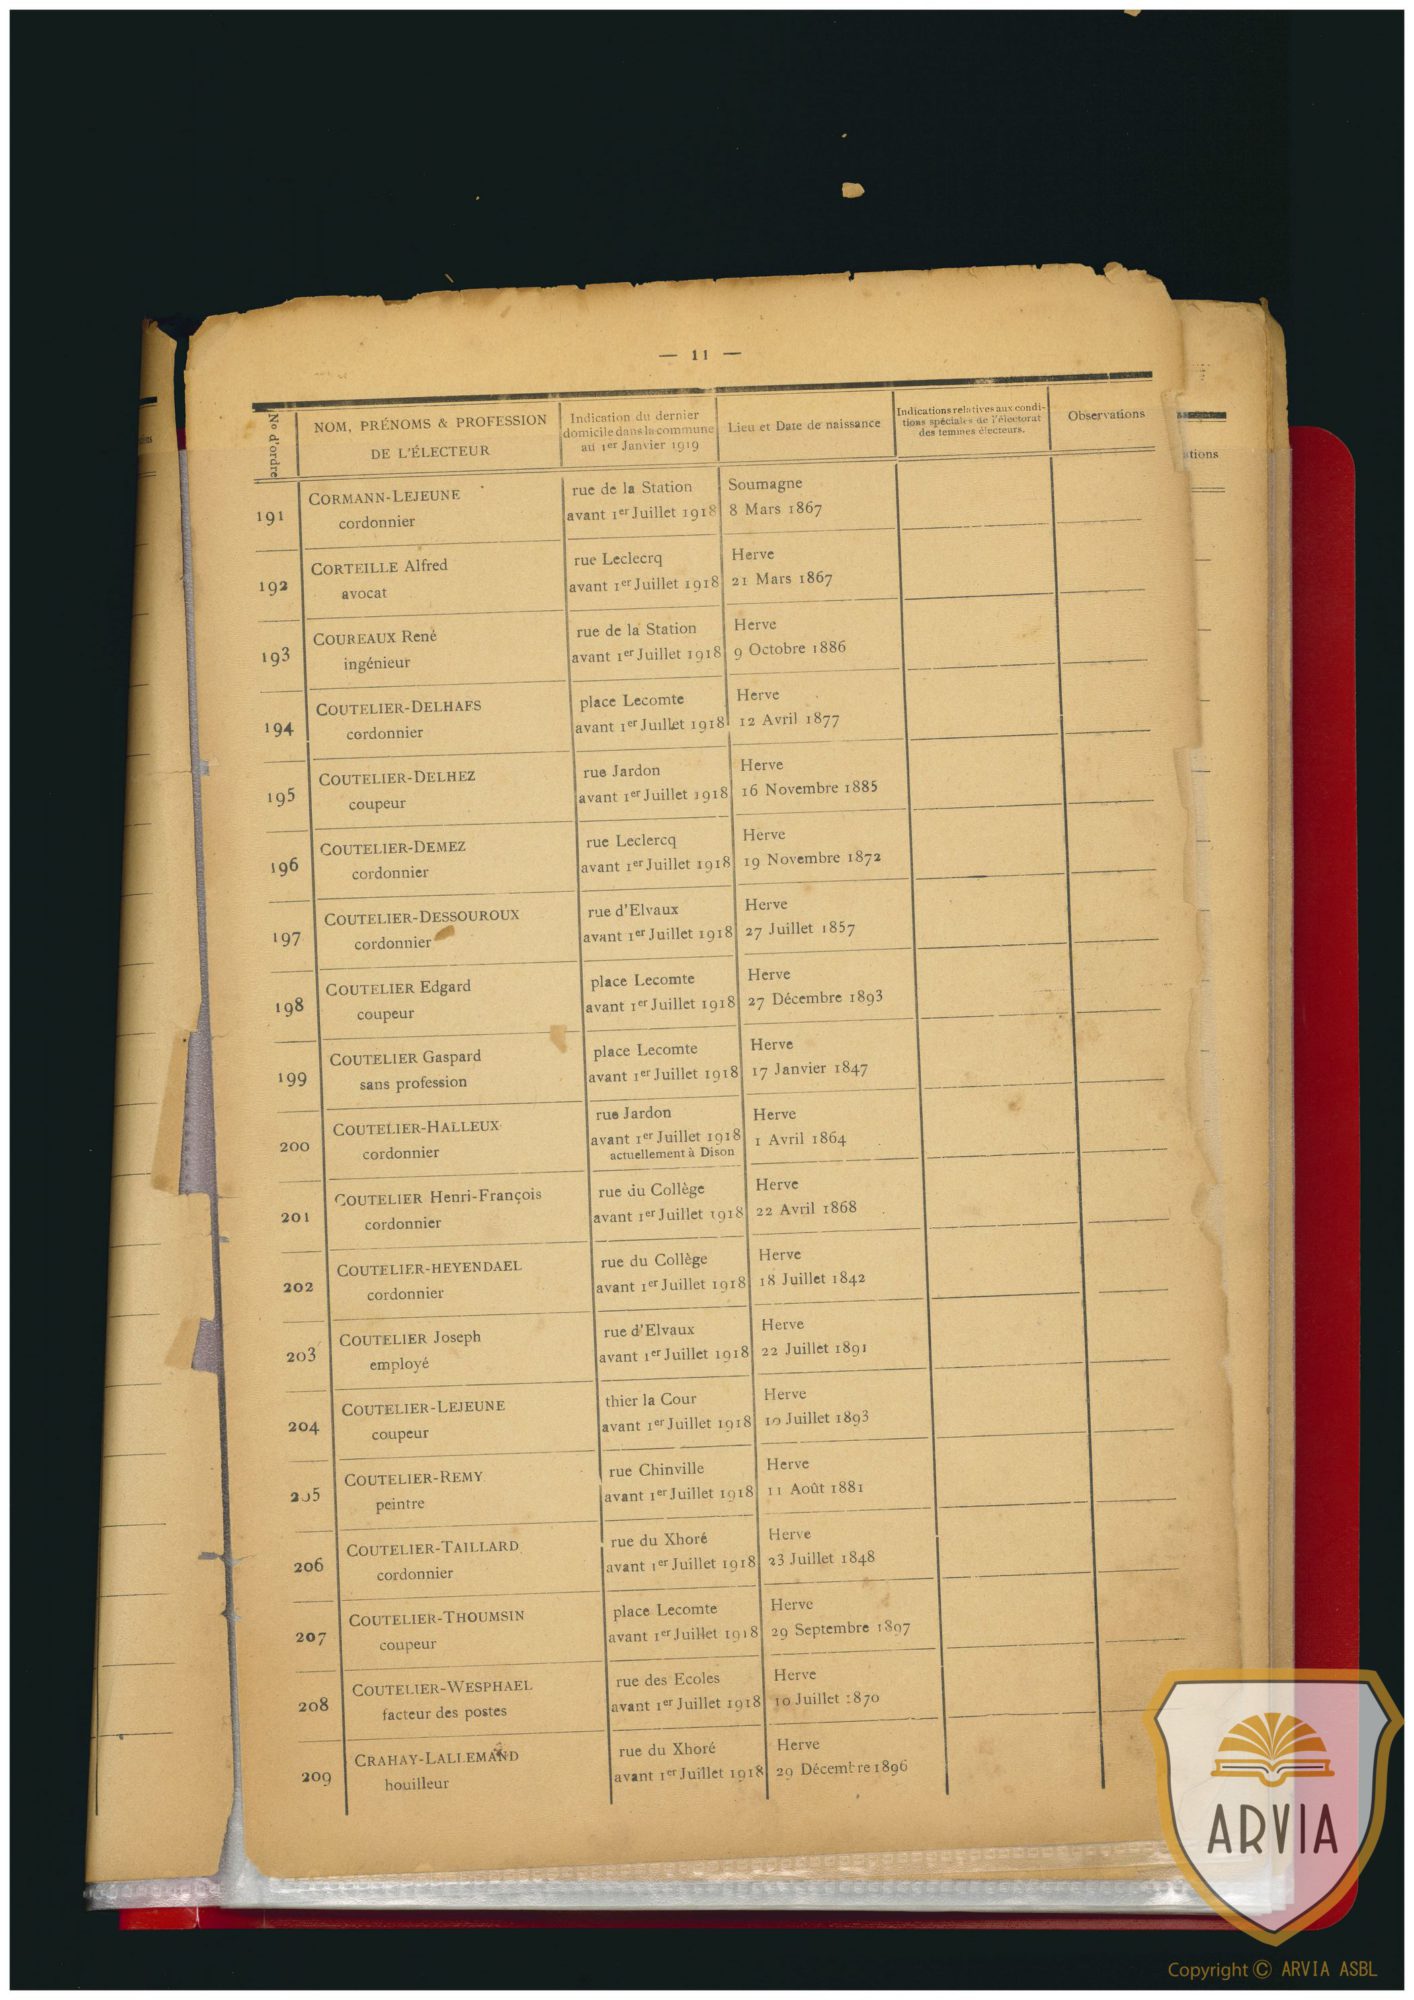 — 11 —
No d'ordre
NOM, PRÉNOMS & PROFESSION
DE L'ÉLECTEUR
Indication du dernier
domicile dans la commune
au 1er Janvier 1919
Lieu et Date de naissance
Indications relatives aux condi-
tions spéciales de l'électorat
des femmes électeurs.
Observations
191
CORMANN-LEJEUNE
cordonnier
rue de la Station
avant 1er Juillet 1918
Soumagne
8 Mars 1867
192
CORTEILLE Alfred
avocat
rue Leclecrq
avant 1er Juillet 1918
Herve
21 Mars 1867
193
COUREAUX René
ingénieur
rue de la Station
avant 1er Juillet 1918
Herve
9 Octobre 1886
194
COUTELIER-DELHAFS
cordonnier
place Lecomte
avant 1er Juillet 1918
Herve
12 Avril 1877
195
COUTELIER-DELHEZ
coupeur
rue Jardon
avant 1er Juillet 1918
Herve
16 Novembre 1885
196
COUTELIER-DEMEZ
cordonnier
rue Leclercq
avant 1er Juillet 1918
Herve
19 Novembre 1872
197
COUTELIER-DESSOUROUX
cordonnier
rue d'Elvaux
avant 1er Juillet 1918
Herve
27 Juillet 1857
198
COUTELIER Edgard
coupeur
place Lecomte
avant 1er Juillet 1918
Herve
27 Décembre 1893
199
COUTELIER Gaspard
sans profession
place Lecomte
avant 1er Juillet 1918
Herve
17 Janvier 1847
200
COUTELIER-HALLEUX
cordonnier
rue Jardon
avant 1er Juillet 1918
actuellement à Dison
Herve
1 Avril 1864
201
COUTELIER Henri-François
cordonnier
rue du Collège
avant 1er Juillet 1918
Herve
22 Avril 1868
202
COUTELIER-HEYENDAEL
cordonnier
rue du Collège
avant 1er Juillet 1918
Herve
18 Juillet 1842
203
COUTELIER Joseph
employé
rue d'Elvaux
avant 1er Juillet 1918
Herve
22 Juillet 1891
204
COUTELIER-LEJEUNE
coupeur
thier la Cour
avant 1er Juillet 1918
Herve
10 Juillet 1893
205
COUTELIER-REMY
peintre
rue Chinville
avant 1er Juillet 1918
Herve
11 Août 1881
206
COUTELIER-TAILLARD
cordonnier
rue du Xhoré
avant 1er Juillet 1918
Herve
23 Juillet 1848
207
COUTELIER-THOUMSIN
coupeur
place Lecomte
avant 1er Juillet 1918
Herve
29 Septembre 1897
208
COUTELIER-WESPHAEL
facteur des postes
rue des Ecoles
avant 1er Juillet 1918
Herve
10 Juillet 1870
209
CRAHAY-LALLEMAND
houilleur
rue du Xhoré
avant 1er Juillet 1918
Herve
29 Décembre 1896
ations
ARVIA
Copyright © ARVIA ASBL